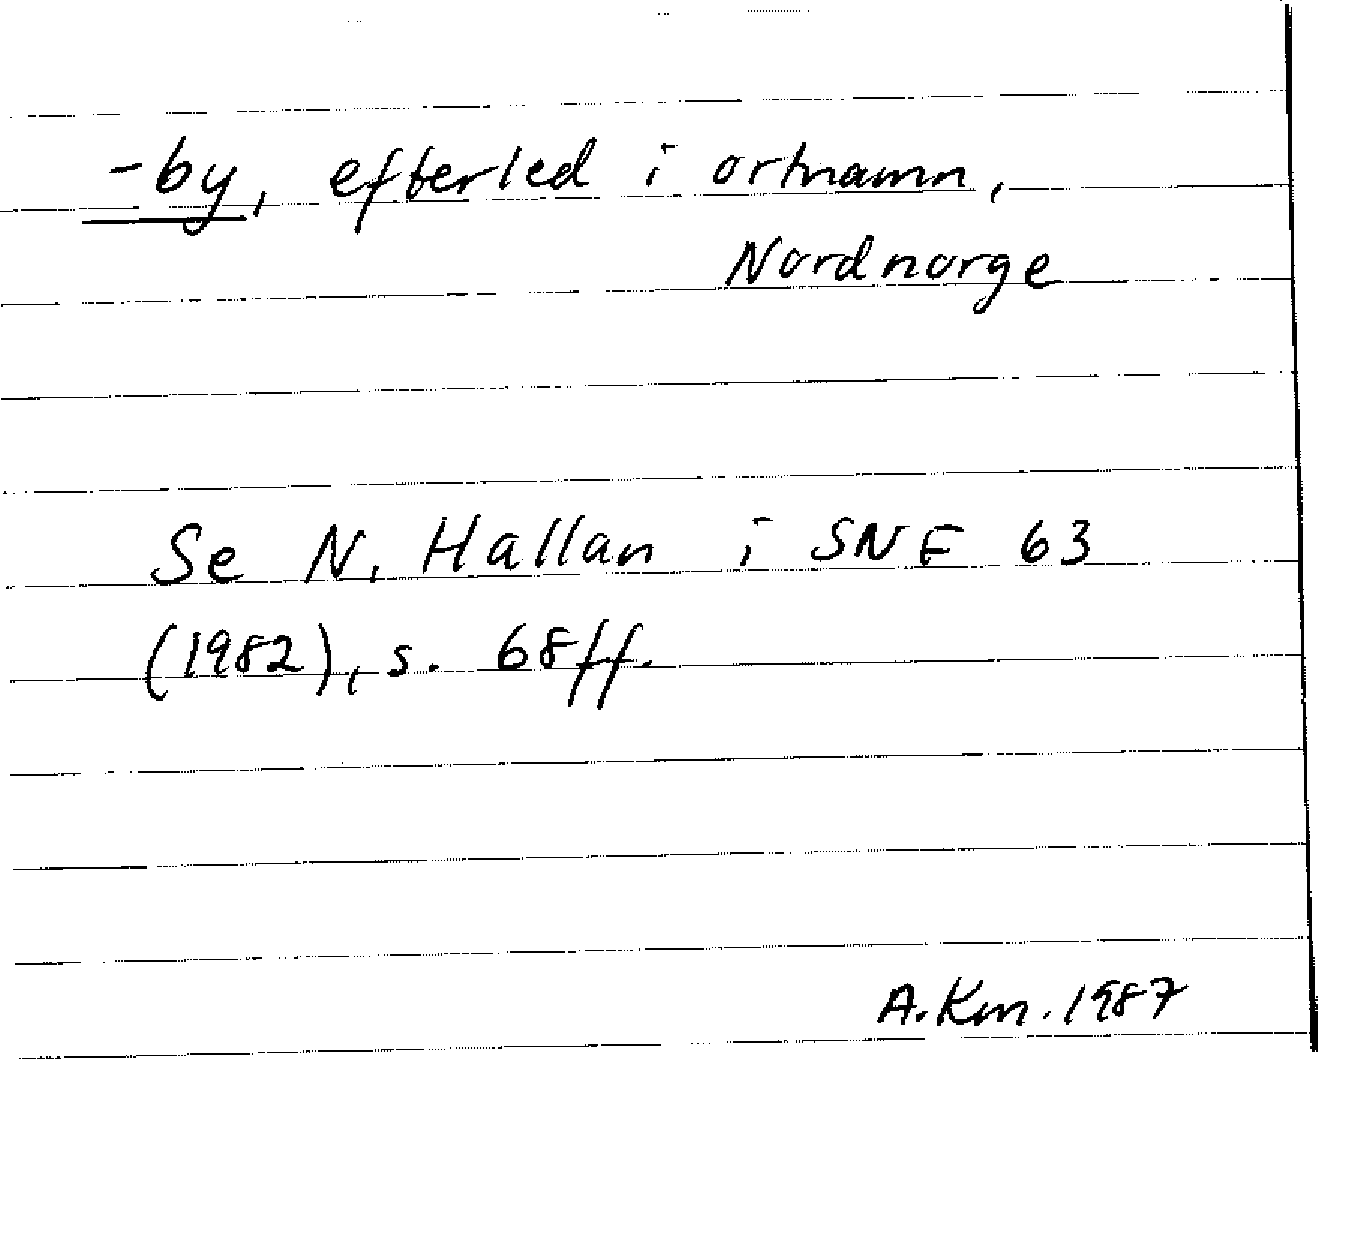 -by, efterled i ortnamn,
Nordnorge
Se N. Hallan i SNF 63
(1982), s. 68ff.
A.Km. 1987